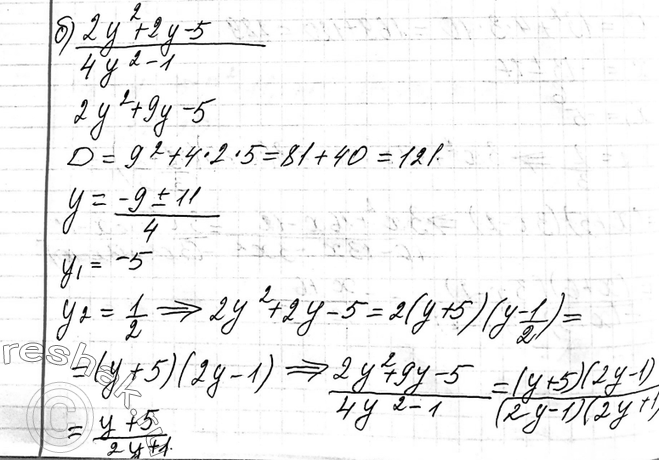 б) (2y²+2y-5)/(4y²-1)
2y²+9y-5
D = 9²+4·2·5=81+40=121.
y = (-9±11)/4
y₁ = -5
y₂ = 1/2 ⟹ 2y²+2y-5=2(y+5)(y-1/2)=
=(y+5)(2y-1) ⟹ (2y²+9y-5)/(4y²-1) = ((y+5)(2y-1))/((2y-1)(2y+1)
= (y+5)/(2y+1).
reshak